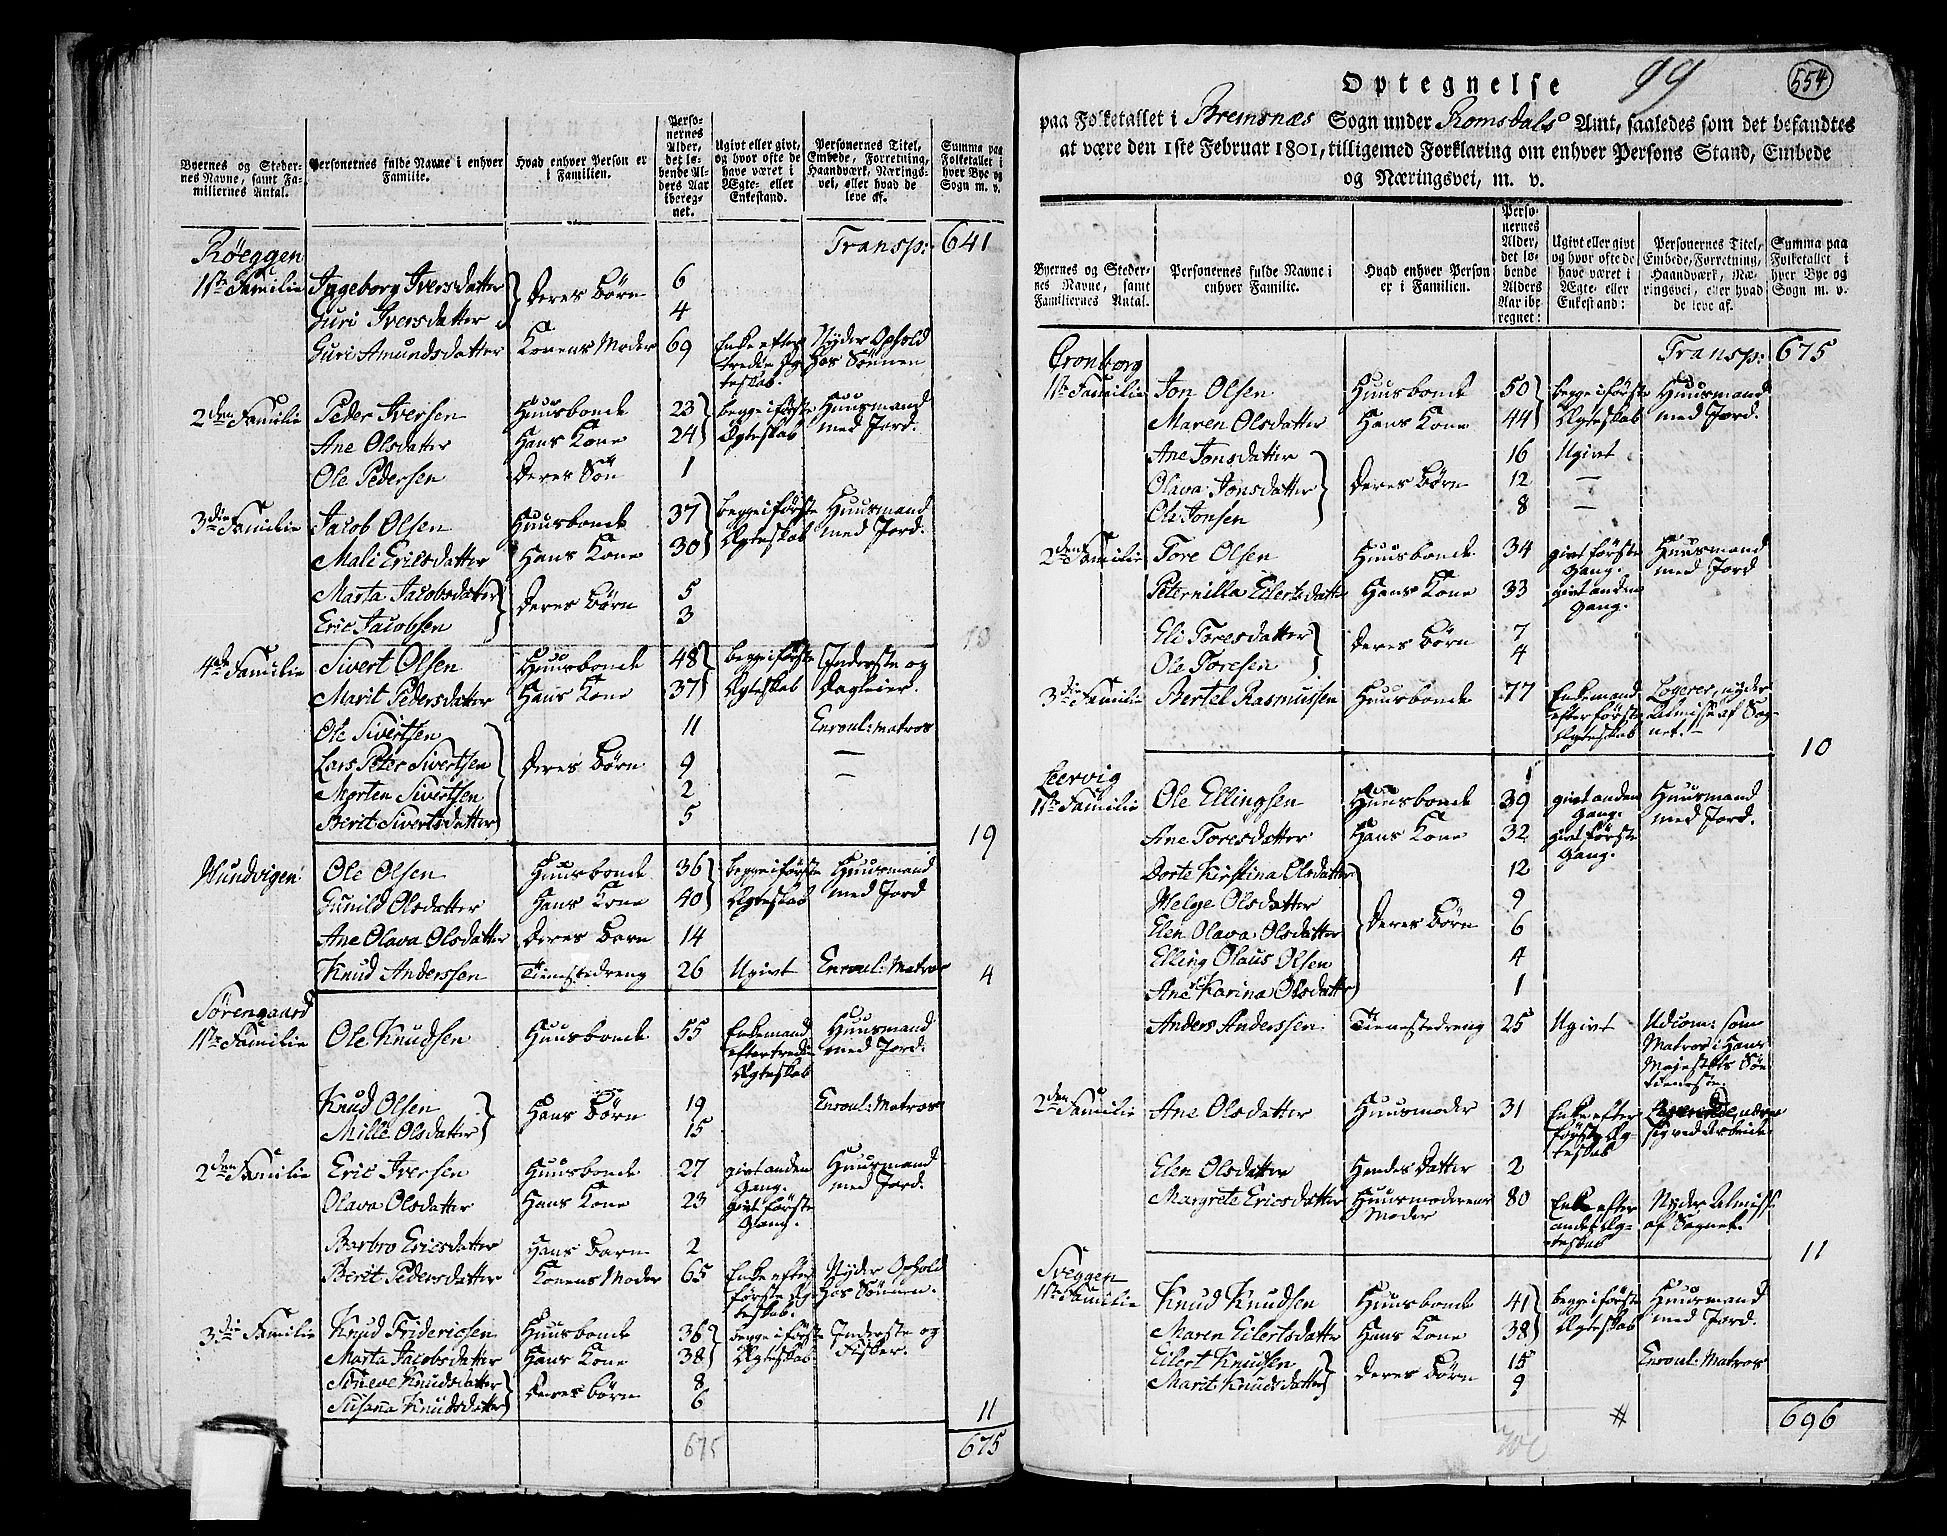 Byernes og Steder-
nes Navne, samt Fa-
miliernes Antal.
Personernes fulde Navne i enhver
Familie.
Hvad enhver Person er
i Familien.
Perso-
nernes
Alder,
det lø-
bende Al-
ders Aar
iberreg-
net.
Ugivt eller givt,
og hvor ofte de
have været i
Ægte- eller
Enkestand.
Personernes Titel,
Embede, Forretning,
Haandværk, Nærings-
vei, eller hvad de
leve af.
Summa paa
Folketallet i
hver Bye og
Sogn m. v.
Röeggen Transp: 641
1ste Familie Ingeborg Iversdatter } Deres Börn 6
Guri Iversdatter 4
Guri Amundsdatter Konens Moder 69 Enke efter Nyder Ophold
tredie Æg- hos Sönnen
teskab.
2den Familie Peder Iversen Huusbonde 23 } begge i förste Huusmand
Ane Olsdatter Hans Kone 24 Ægteskab med Jord.
Ole Pedersen Deres Sön 1
3die Familie Jacob Olsen Huusbonde 37 } begge i förste Huusmand
Mali Ericsdatter Hans Kone 30 Ægteskab med Jord.
Marta Jacobsdatter } Deres Börn 5
Eric Jacobsen 3
4de Familie Sivert Olsen Huusbonde 48 } begge i förste Inderste og
Marit Pedersdatter Hans Kone 37 Ægteskab Dagleier.
Ole Sivertsen 11 Enroul: matros
Lars Peter Sivertsen } Deres Börn 9 —
Morten Sivertsen 2 —
Berit Sivertsdatter 5
19
Mundvigen Ole Olsen Huusbonde 36 } begge i förste Huusmand
Gunild Olsdatter Hans Kone 40 Ægteskab med Jord
Ane Olava Olsdatter Deres Barn 14
Knud Anderssen Tienestedreng 26 Ugivt Enroul: Matros 4
Sörengaard
1ste Familie Ole Knudsen Huusbonde 55 Enkemand Huusmand
efter tredie med Jord.
Ægteskab
Knud Olsen } Hans Börn 19 Enroul: Matros
Mille Olsdatter 15
2den Familie Eric Iversen Huusbonde 27 givt anden Huusmand
Gang. med Jord.
Olava Olsdatter Hans Kone 23 givt förste
Gang.
Barbro Ericsdatter Hans Barn 2
Berit Pedersdatter Konens Moder 65 Enke efter Nyder Ophold
förste Æg- hos Sönnen.
teskab.
3die Familie Knud Fridericsen Huusbonde 36 } begge i förste Inderste og
Marta Jacobsdatter Hans Kone 38 Ægteskab Fisker.
Knudsdatter } Deres börn 8
Susanna Knudsdatter 6 11
675 675
Optegnelse 99 554
paa Folketallet i Bremsnæs Sogn under Romsdals Amt, saaledes som det befandtes
at være den 1ste Februar 1801, tilligemed Forklaring om enhver Persons Stand, Embede
og Næringsvei, m. v.
Byernes og Steder-
nes Navne, samt
Familiernes Antal.
Personernes fulde Navne i
enhver Familie.
Hvad enhver Person
er i Familien.
Perso-
nernes
Alder,
det lø-
bende
Alders
Aar ibe-
regnet:
Ugivt eller givt
og hvor ofte de
have været i
Ægte- eller
Enkestand:
Personernes Titel,
Embede, Forretning,
Haandværk, Næ-
ringsvei, eller hvad
de leve af.
Summa paa
Folketallet i
hver Bye og
Sogn m. v.
Cronborg Transp: 675
1ste Familie Jon Olsen Huusbonde 50 } begge i förste Huusmand
Maren Olsdatter Hans Kone 44 Ægteskab med Jord.
Ane Jonsdatter 16 Ugivt
Olava Jonsdatter } Deres Börn 12 —
Ole Jonsen 8 —
2den Familie Tore Olsen Huusbonde 34 givt förste Huusmand
Gang. med Jord
Peternilla Eilertsdatter Hans Kone 33 givt anden
Gang.
Eli Toresdatter } Deres Börn 7
Ole Toresen 4
3die Familie Bertel Rasmussen Huusbonde 77 Enkemand Logerer, nyder
efter förste Almisse af Sog-
Ægteskab net.
10
Leervig
1ste Familie Ole Ellingsen Huusbonde 39 givt anden Huusmand
Gang. med Jord.
Ane Toresdatter Hans Kone 32 givt förste
Gang.
Dorte Kirstina Olsdatter 12
Helge Olsdatter 9
Elen Olava Olsdatter } Deres Börn 6
Elling Olaus Olsen 4
Ane Karina Olsdatter 1
Anders Anderssen Tienestedreng 25 Ugivt Udcom: som
Matros i Hans
Majestæts Söe
tieneste.
2den Familie Ane Olsdatter Huusmoder 31 Enke efter nærer
förste Æg- sig ved Arbeide.
teskab
Elen Olsdatter Hendes Datter 2
Margrete Ericsdatter Huusmoderens 80 Enke efter Nyder Almiss
Moder andet Æg- af Sognet.
teskab
11
Sveggen
1ste Familie Knud Knudsen Huusbonde 41 } begge i förste Huusmand
Maren Eilertsdatter Hans Kone 38 Ægteskab med Jord.
Eilert Knudsen } Deres Börn 15 Enroul: Matros
Marit Knudsdatter 9
# 696